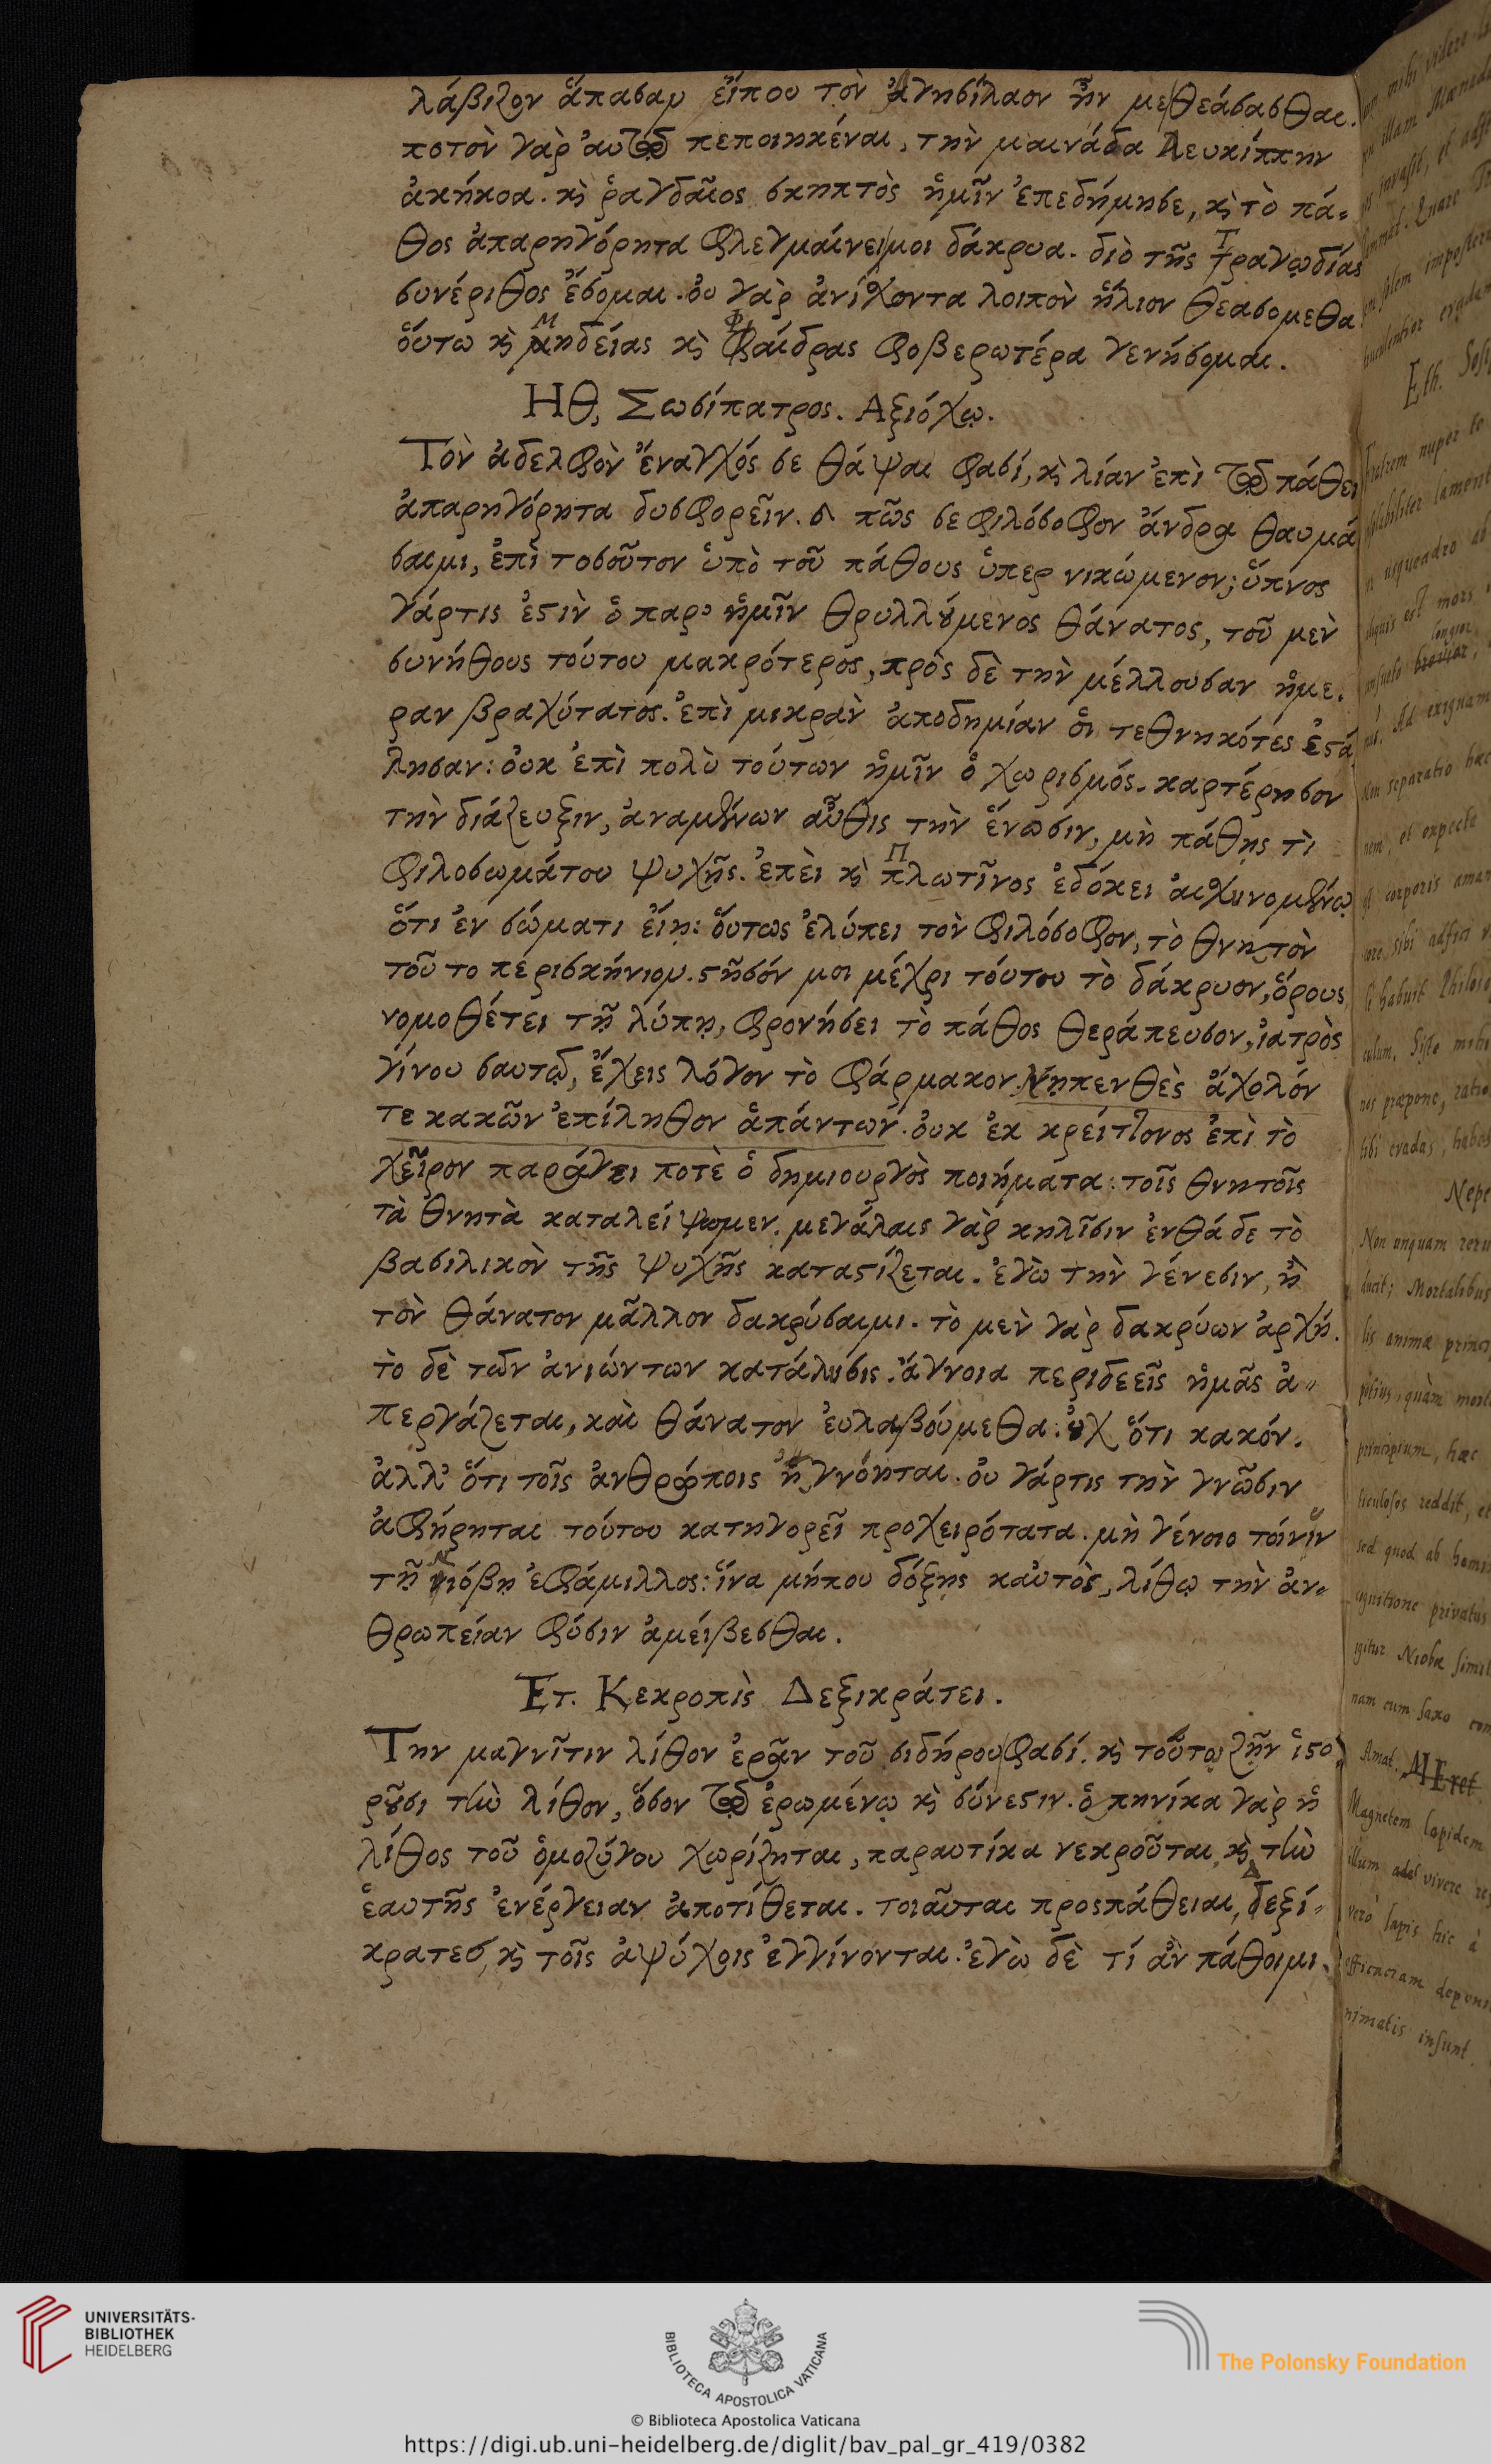 λάβιζον ἅπασαν εἴπου τὸν ἀγησίλαον ἦν με θεάσασθαι.
ποτὸν γὰρ αὐτῷ πεποιηκέναι, τὴν μαινάδα Λευκίππην
ἀκήκοα. κὶ ῥαγδαῖος σκηπτὸς ἡμῖν ἐπεδήμησε, κὶ τὸ πά-
θος ἀπαρηγόρητα φλεγμαίνει μοι δάκρυα. διὸ τῆς Τραγῳδίας
συνέριθος ἔσομαι. οὐ γὰρ ἀνίχοντα λοιπὸν ἥλιον θεασομεθα
οὕτω κὶ Μηδείας κὶ Φαίδρας φοβερωτέρα γενήσομαι.
Ηθ, Σωσίπατρος. Αξιόχῳ.
Τὸν ἀδελφὸν ἔναγχός σε θάψαι φασί, κὶ λίαν ἐπὶ τῷ πάθει
ἀπαρηγόρητα δυσφορεῖν. κὶ πῶς σε φιλόσοφον ἄνδρα θαυμά
σαιμι, ἐπὶ τοσοῦτον ὑπὸ τοῦ πάθους ὑπερ νικώμενον; ὕπνος
γάρτις ἐστὶν ὁ παρ' ἡμῖν θρυλλούμενος θάνατος, τοῦ μὲν
συνήθους τούτου μακρότερος, πρὸς δὲ τὴν μέλλουσαν ἡμέ.
ραν βραχύτατος. ἐπὶ μικρὰν ἀποδημίαν οἱ τεθνηκότες ἐστά
λησαν: οὐκ ἐπὶ πολὺ τούτων ἡμῖν ὁ χωρισμός. καρτέρησον
τὴν διάζευξιν, ἀναμένων αὖθις τὴν ἕνωσιν, μὴ πάθῃς τὶ
φιλοσωμάτου ψυχῆς. ἐπεὶ κὶ Πλωτῖνος ἐδόκει αἰσχυνομένῳ
ὅτι ἐν σώματι εἴη: οὕτως ἐλύπει τὸν φιλόσοφον, τὸ θνητὸν
τοῦ το περισκήνιον. στῆσόν μοι μέχρι τούτου τὸ δάκρυον, ὅρους
νομοθέτει τῇ λύπῃ, φρονήσει τὸ πάθος θεράπευσον, ἰατρὸς
γίνου σαυτῷ, ἔχεις λόγον τὸ φάρμακον. Νηπενθὲς ἄχολόν
τε κακῶν ἐπίληθον ἁπάντων. οὐκ ἐκ κρείττονος ἐπὶ τὸ
χεῖρον παράγει ποτὲ ὁ δημιουργὸς ποιήματα: τοῖς θνητοῖς
τὰ θνητὰ καταλείψωμεν. μεγάλαις γὰρ κηλῖσιν ἐνθά δε τὸ
βασιλικὸν τῆς ψυχῆς καταστίζεται. ἐγὼ τὴν γένεσιν, ἢ
τὸν θάνατον μᾶλλον δακρύσαιμι. τὸ μὲν γὰρ δακρύων ἀρχή.
τὸ δὲ τῶν ἀνιώντων κατάλυσις. ἄγνοια περιδεεῖς ἡμᾶς ἀ-
περγάζεται, καὶ θάνατον εὐλαβούμεθα: οὐχ ὅτι κακόν.
ἀλλ' ὅτι τοῖς ἀνθρώποις ἠγνόηται. οὐ γάρτις τὴν γνῶσιν
ἀφῄρηται τούτου κατηγορεῖ προχειρότατα. μὴ γένοιο τοίνυν
τῇ Νιόβῃ ἐφάμιλλος: ἵνα μήπου δόξῃς καὐτὸς, λίθῳ τὴν ἀν-
θρωπείαν φύσιν ἀμείβεσθαι.
Ετ. Κεκροπὶς Δεξικράτει.
Την μαγνῖτιν λίθον ἐρᾶν τοῦ σιδήρου φασί. κὶ τοῦτο ζῆν ἱστο
ροῦσι τὴν λίθον, ὅσον τῷ ἐρωμένῳ κὶ σύνεστιν. ὁπηνίκα γὰρ ἡ
λίθος τοῦ ὁμοζύγου χωρίζηται, παραυτίκα νεκροῦται, κὶ τὴν
ἑαυτῆς ἐνέργειαν ἀποτίθεται. τοιαῦται προσπάθειαι, Δεξί-
κρατες, κὶ τοῖς ἀψύχοις ἐγγίνονται. ἐγὼ δὲ τί ἂν πάθοιμι.
Eth. Sosi
Fratrem nuper te
lamen
usqueadeo ab
aliquis est mors
longior
Ad exiguam
Non separatio hæc
nem, et expecta
corporis aman
sibi adfici
habuit Philoso
culum. Siste mihi
nos præpone, ratio
tibi evadas, habes
Nepe
Non unquam reru
ducit; Mortalibus
lis animæ princi
potius, quàm mort
principium, hæc
ticulosos reddit, et
sed quod ab homi
cognitione privatus
igitur Niobæ simil
nam cum saxo com
Amat.
Magnetem lapidem
illum vivere
verò lapis hic à
efficaciam depon
nimatis insunt.
UNIVERSITÄTS-
BIBLIOTHEK
HEIDELBERG
BIBLIOTECA APOSTOLICA VATICANA
The Polonsky Foundation
© Biblioteca Apostolica Vaticana
https://digi.ub.uni-heidelberg.de/diglit/bav_pal_gr_419/0382